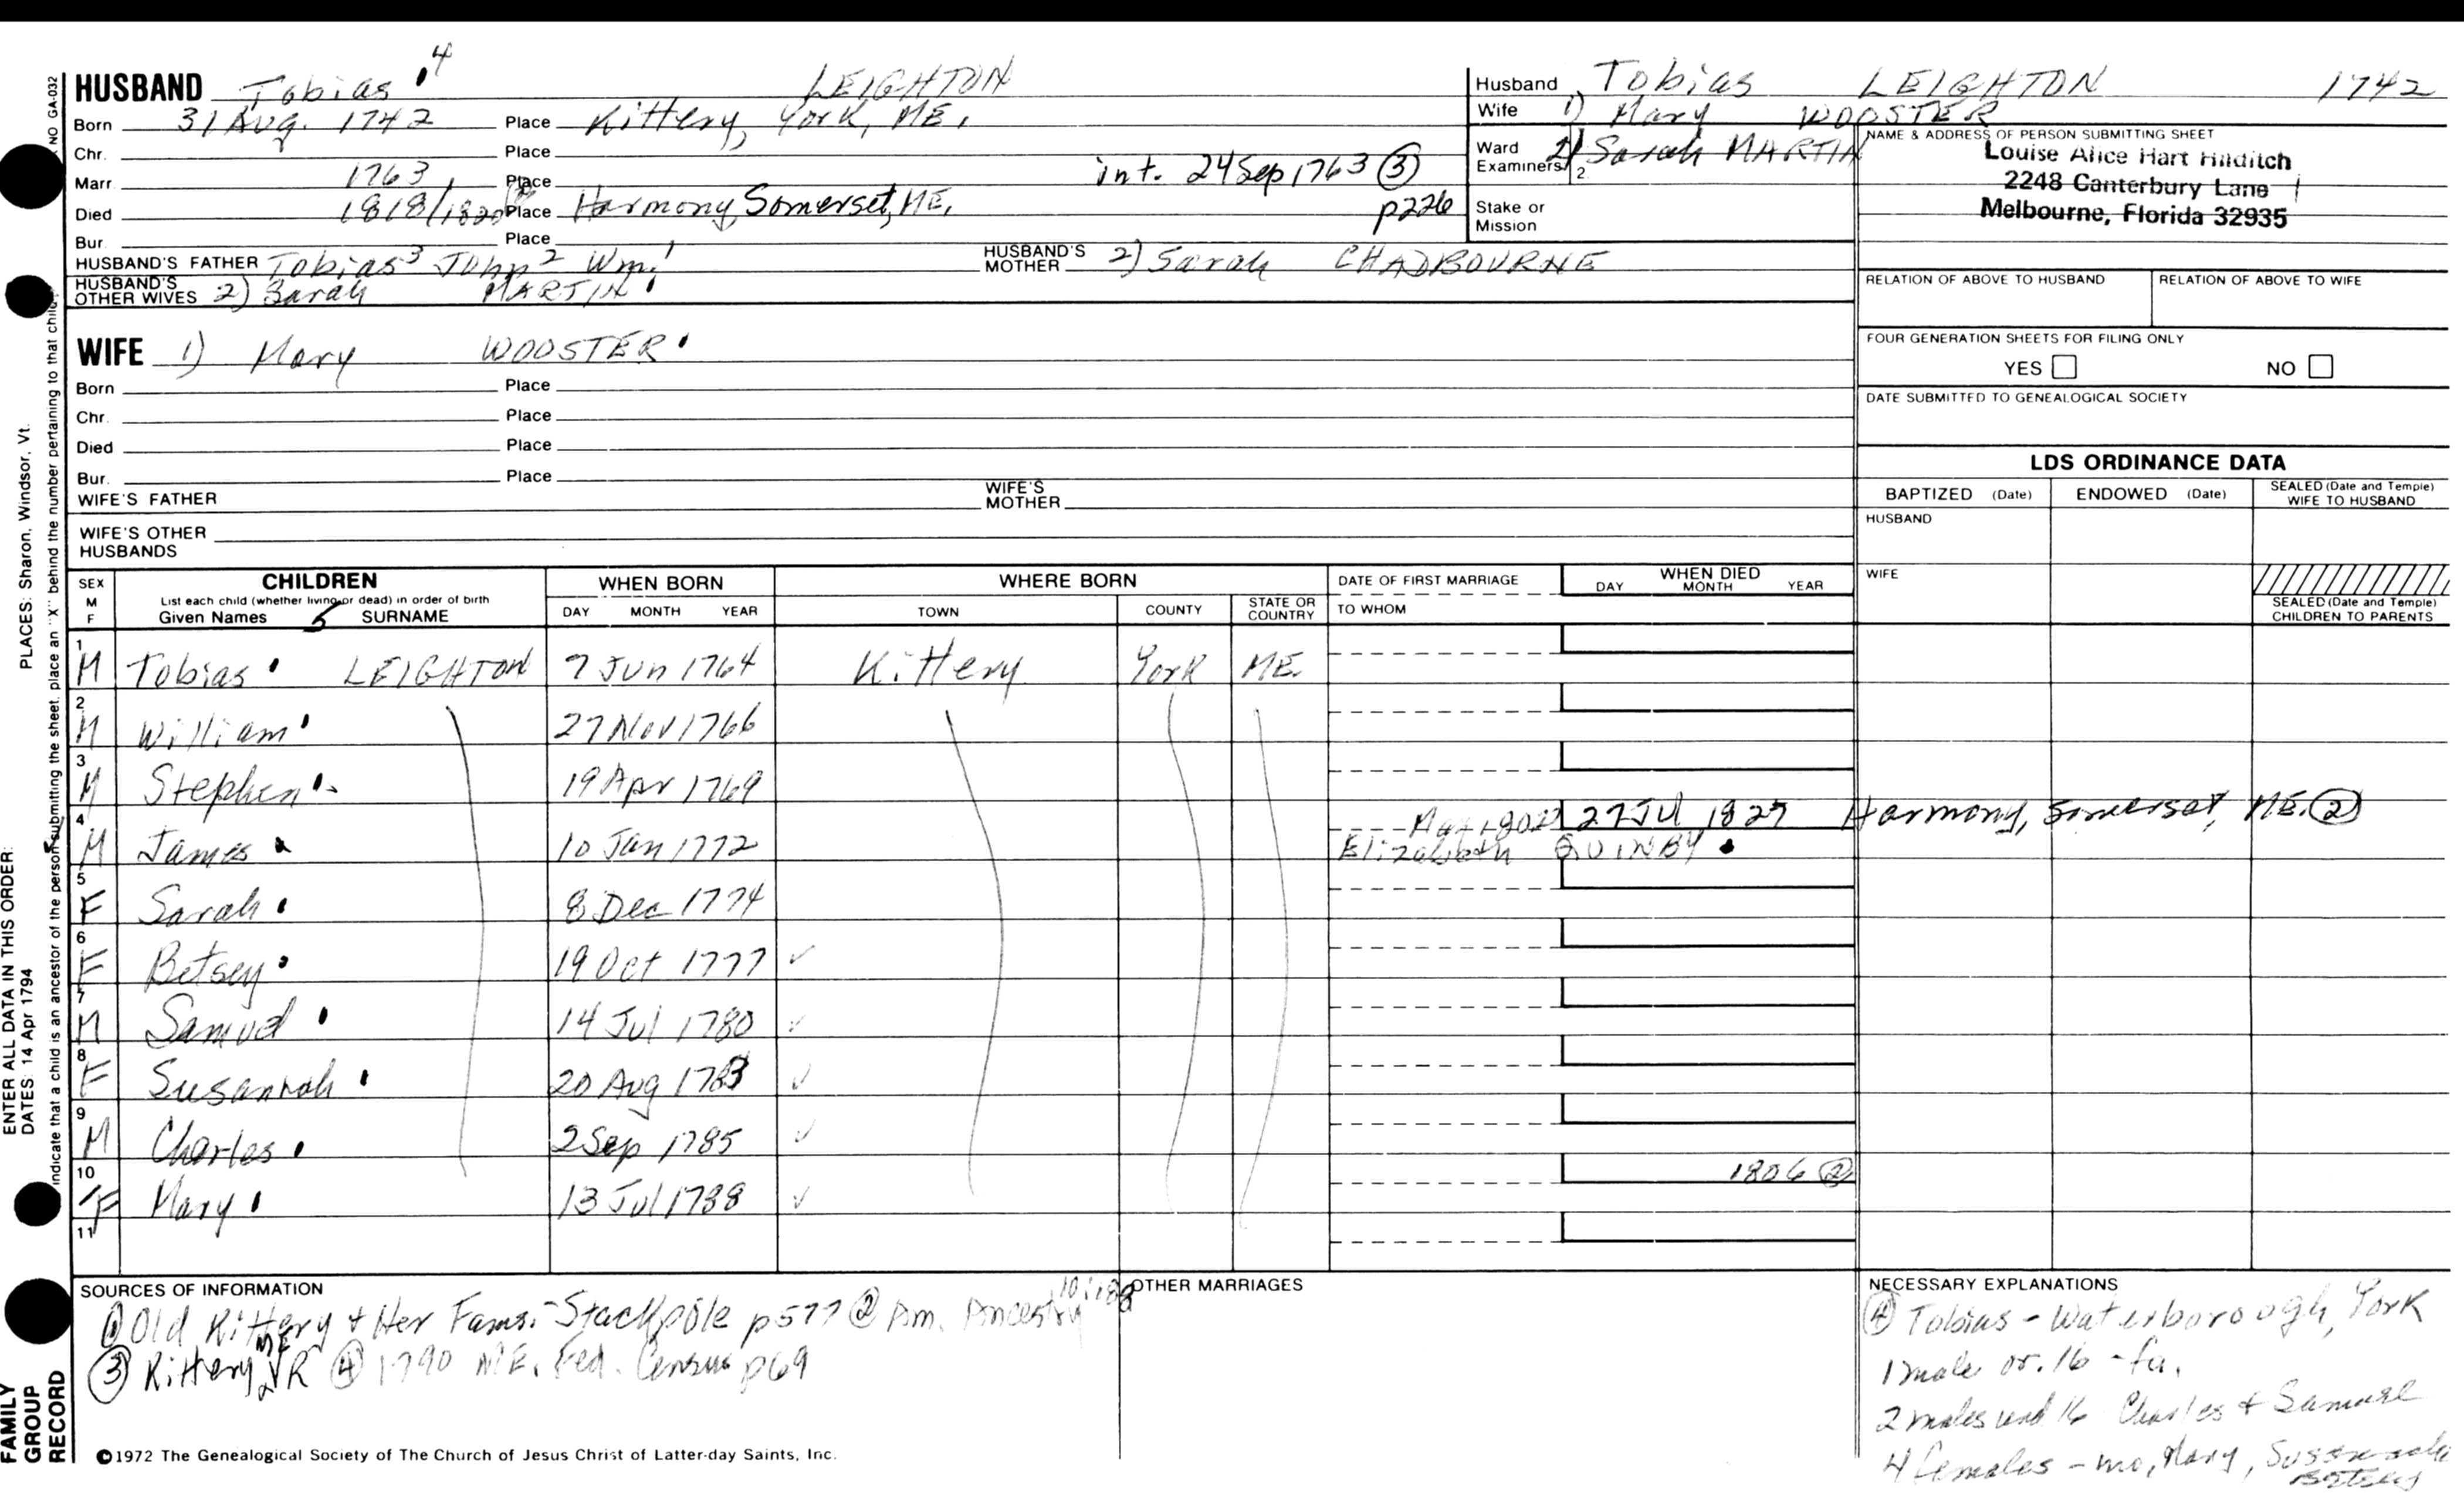 HUSBAND Tobias 4 LEIGHTON
Born 31 Aug. 1742 Place Kittery, York, ME.
Chr. Place
Marr. 1763 Place int. 24 Sep 1763 (3)
Died 1818/1820 Place Harmony, Somerset, ME. p226
Bur. Place
HUSBAND'S FATHER Tobias 3 John 2 Wm. 1 HUSBAND'S MOTHER 2) Sarah CHADBOURNE
HUSBAND'S OTHER WIVES 2) Sarah MARTIN
Husband Tobias LEIGHTON 1742
Wife 1) Mary WOOSTER
Ward 2) Sarah MARTIN
Examiners: 2.
Stake or Mission
NAME & ADDRESS OF PERSON SUBMITTING SHEET
Louise Alice Hart Hilditch
2248 Canterbury Lane
Melbourne, Florida 32935
RELATION OF ABOVE TO HUSBAND RELATION OF ABOVE TO WIFE
FOUR GENERATION SHEETS FOR FILING ONLY
YES NO
DATE SUBMITTED TO GENEALOGICAL SOCIETY
WIFE 1) Mary WOOSTER
Born Place
Chr. Place
Died Place
Bur. Place
WIFE'S FATHER WIFE'S MOTHER
WIFE'S OTHER HUSBANDS
LDS ORDINANCE DATA
BAPTIZED (Date) ENDOWED (Date) SEALED (Date and Temple) WIFE TO HUSBAND
HUSBAND
WIFE
SEALED (Date and Temple) CHILDREN TO PARENTS
SEX M F CHILDREN WHEN BORN WHERE BORN DATE OF FIRST MARRIAGE WHEN DIED
List each child (whether living or dead) in order of birth
Given Names 5 SURNAME DAY MONTH YEAR TOWN COUNTY STATE OR COUNTRY TO WHOM DAY MONTH YEAR
1 M Tobias LEIGHTON 7 Jun 1764 Kittery York ME.
2 M William 27 Nov 1766
3 M Stephen 19 Apr 1769
4 M James 10 Jan 1772 Elizabeth QUINBY 27 Jul 1827 Harmony, Somerset, ME. (2)
5 F Sarah 8 Dec 1774
6 F Betsey 19 Oct 1777
7 M Samuel 14 Jul 1780
8 F Susannah 20 Aug 1783
9 M Charles 2 Sep 1785
10 F Mary 13 Jul 1788 1806 (2)
11
SOURCES OF INFORMATION
(1) Old Kittery & Her Fams. - Stackpole p577 (2) Am. Ancestry
(3) Kittery ME VR (4) 1790 ME. Fed. Census p69
OTHER MARRIAGES
NECESSARY EXPLANATIONS
(4) Tobias - Waterborough, York
1 male ov. 16 - fa.
2 males und 16 Charles & Samuel
4 females - mo, Mary, Susannah
Betsey
©1972 The Genealogical Society of The Church of Jesus Christ of Latter-day Saints, Inc.
FAMILY GROUP RECORD
ENTER ALL DATA IN THIS ORDER:
DATES: 14 Apr 1794 PLACES: Sharon, Windsor, Vt.
indicate that a child is an ancestor of the person submitting the sheet, place an "X" behind the number pertaining to that child.
NO GA-032